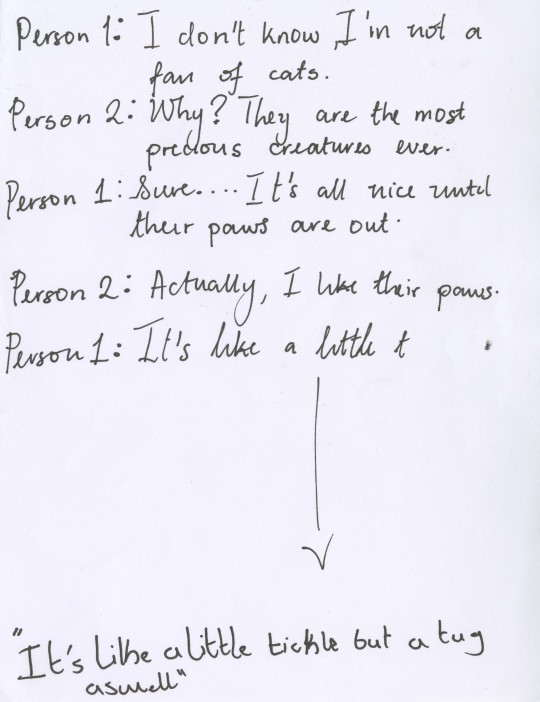 Person 1: I don't know, I'm not a
fan of cats.
Person 2: Why? They are the most
precious creatures ever.
Person 1: Sure.... It's all nice until
their paws are out.
Person 2: Actually, I like their paws.
Person 1: It's like a little t
"It's like a little tickle but a tug
aswell"